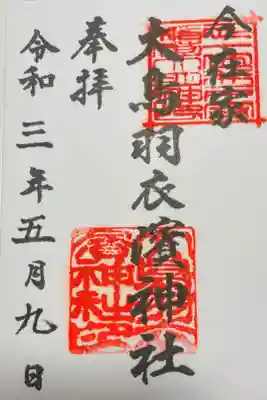 今在家
大鳥羽衣濱神社
奉拝
令和三年五月九日